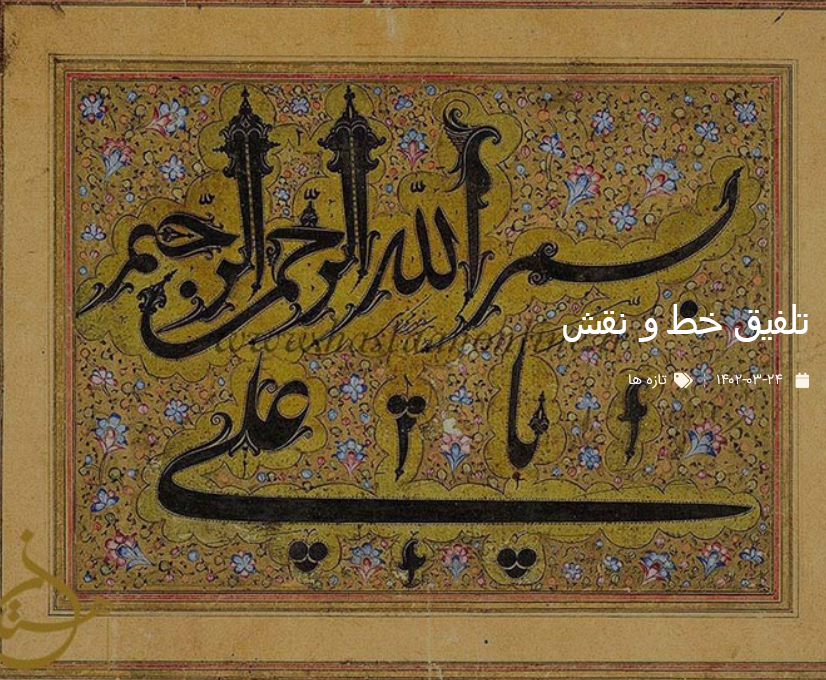 بسم الله الرحمن الرحیم
تلفیق خط و نقش
تازه ها | ۱۴۰۲-۰۳-۲۴
یا علی